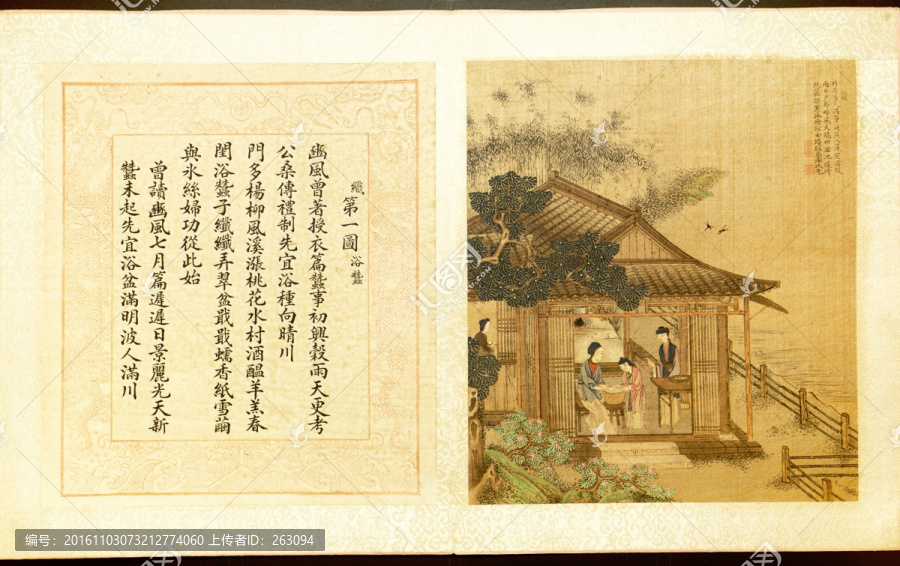 織第一圖浴蠶
豳風曾著授衣篇蠶事初興穀雨天更考
公桑傳禮制先宜浴種向晴川
門多楊柳風溪漲桃花水村酒醞羊羔春
閨浴蠶子纖纖弄翠盆戢戢蠕香紙雪繭
與氷絲婦功從此始
曾讀豳風七月篇遲遲日景麗光天新
蠶未起先宜浴盆滿明波人滿川
编号：20161103073212774060 上传者ID：263094